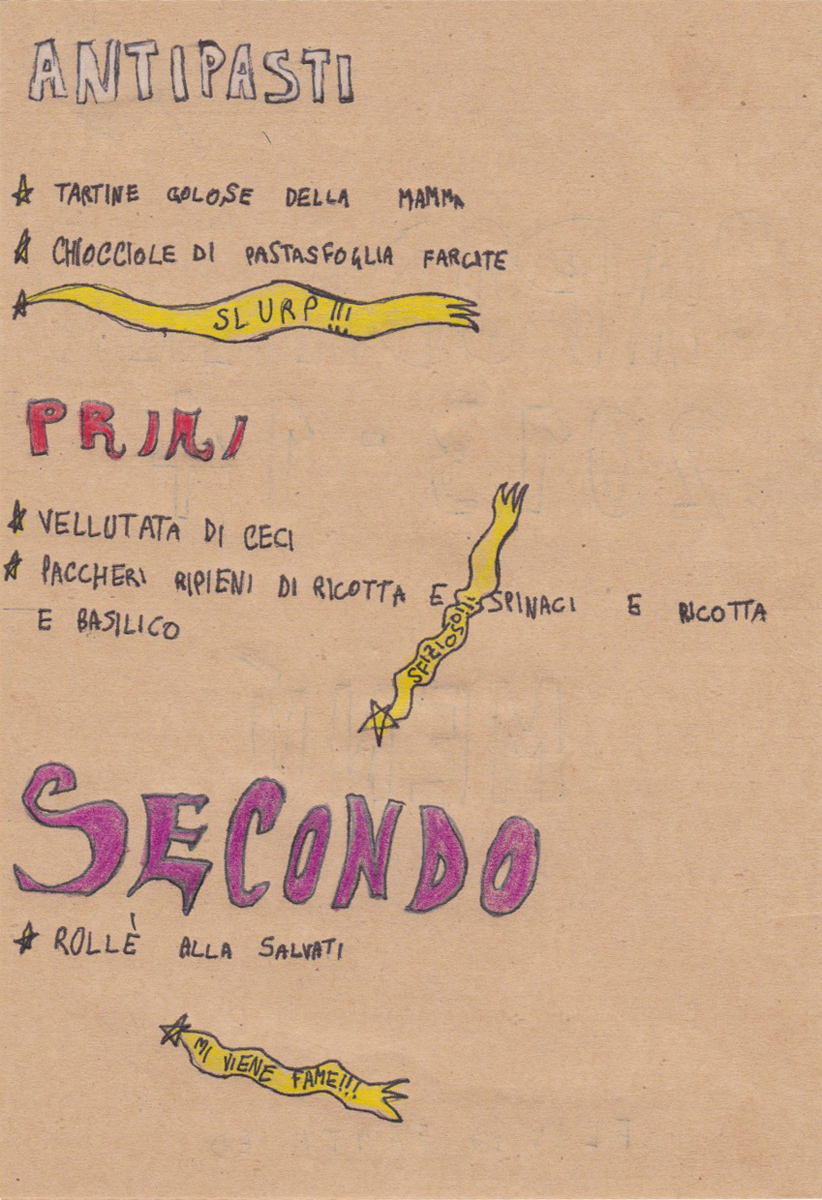 ANTIPASTI
TARTINE GOLOSE DELLA MAMMA
CHIOCCIOLE DI PASTASFOGLIA FARCITE
SLURP!!!
PRIMI
VELLUTATA DI CECI
PACCHERI RIPIENI DI RICOTTA E SPINACI E RICOTTA
E BASILICO
SFIZIOSO!!!
SECONDO
ROLLÈ ALLA SALVATI
MI VIENE FAME!!!